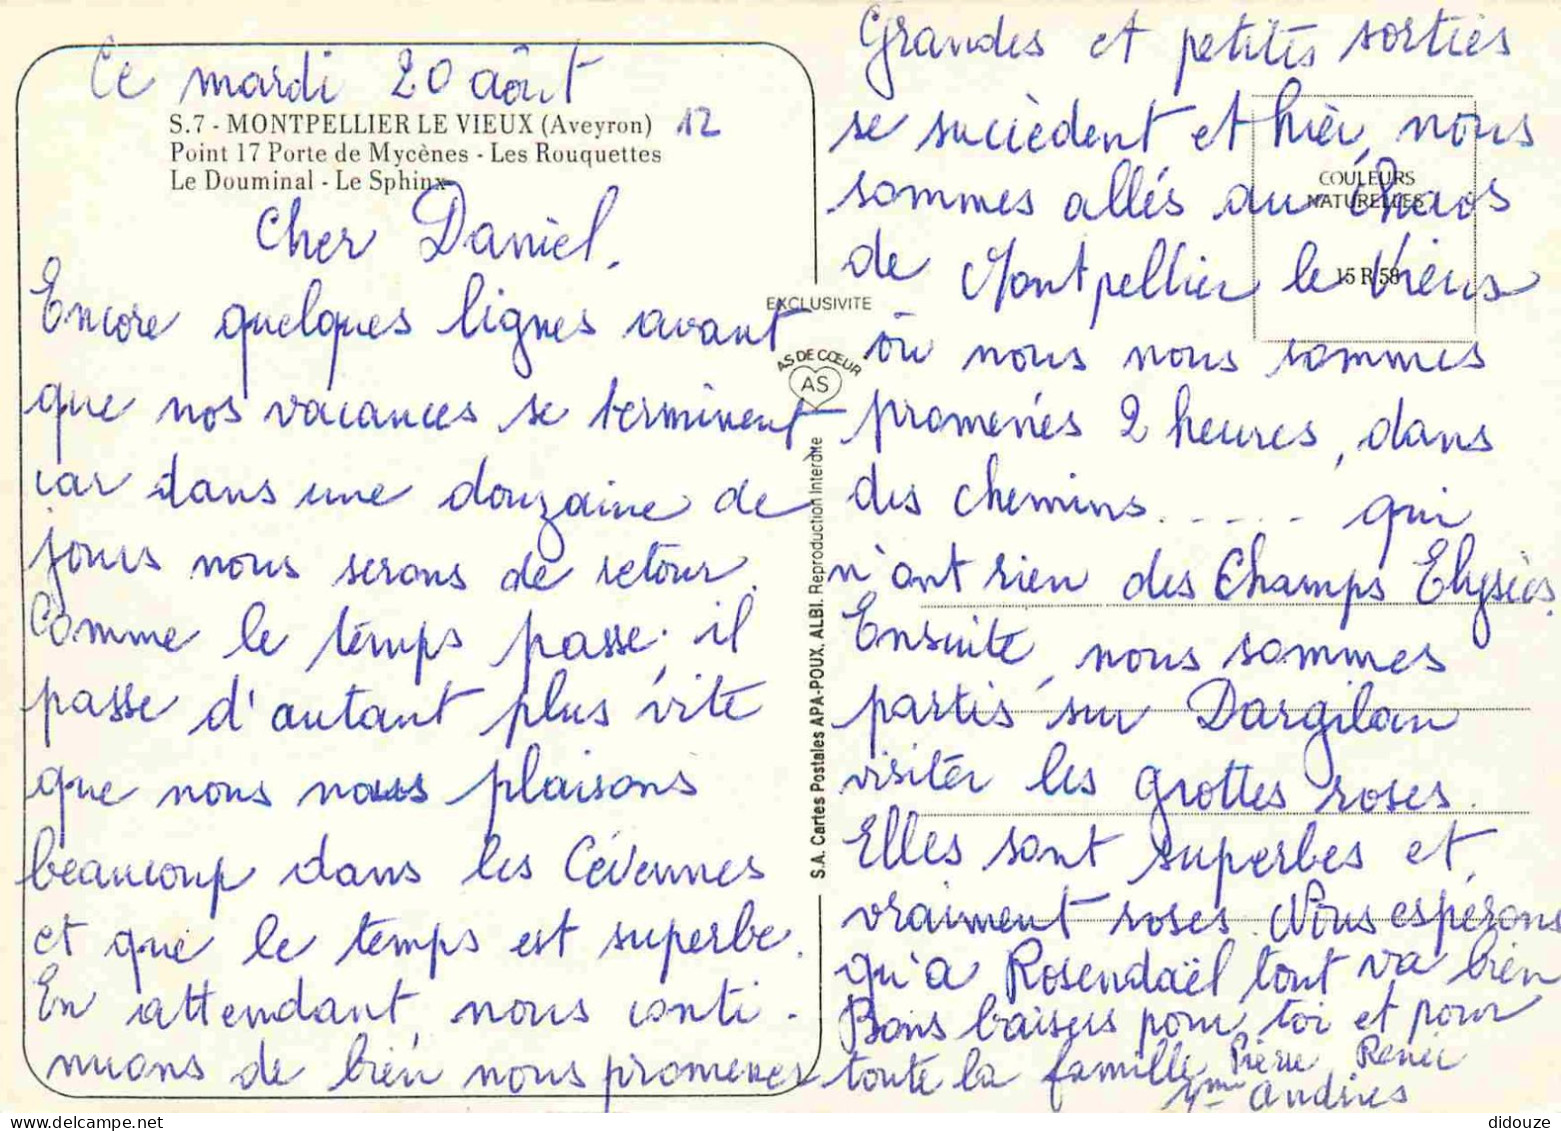 Ce mardi 20 août
S.7 - MONTPELLIER LE VIEUX (Aveyron) 12
Point 17 Porte de Mycènes - Les Rouquettes
Le Douminal - Le Sphinx
Cher Daniel,
Encore quelques lignes avant
que nos vacances se terminent
car dans une douzaine de
jours nous serons de retour.
Comme le temps passe, il
passe d'autant plus vite
que nous nous plaisons
beaucoup dans les Cévennes
et que le temps est superbe.
En attendant, nous conti-
nuons de bien nous promener
EXCLUSIVITE
AS DE CŒUR
AS
S.A. Cartes Postales APA-POUX, ALBI. Reproduction Interdite
Grandes et petites sorties
se succèdent et hier, nous
sommes allés au Chaos
de Montpellier le Vieux
où nous nous sommes
promenés 2 heures, dans
des chemins..... qui
n'ont rien des Champs Elysées.
Ensuite, nous sommes
partis sur Dargilan
visiter les grottes roses.
Elles sont superbes et
vraiment roses. Nous espérons
qu'à Rosendaël tout va bien
Bons baisers pour toi et pour
toute la famille Pierre Renée
Mme Andries
COULEURS
NATURELLES
15 R 58
didouze